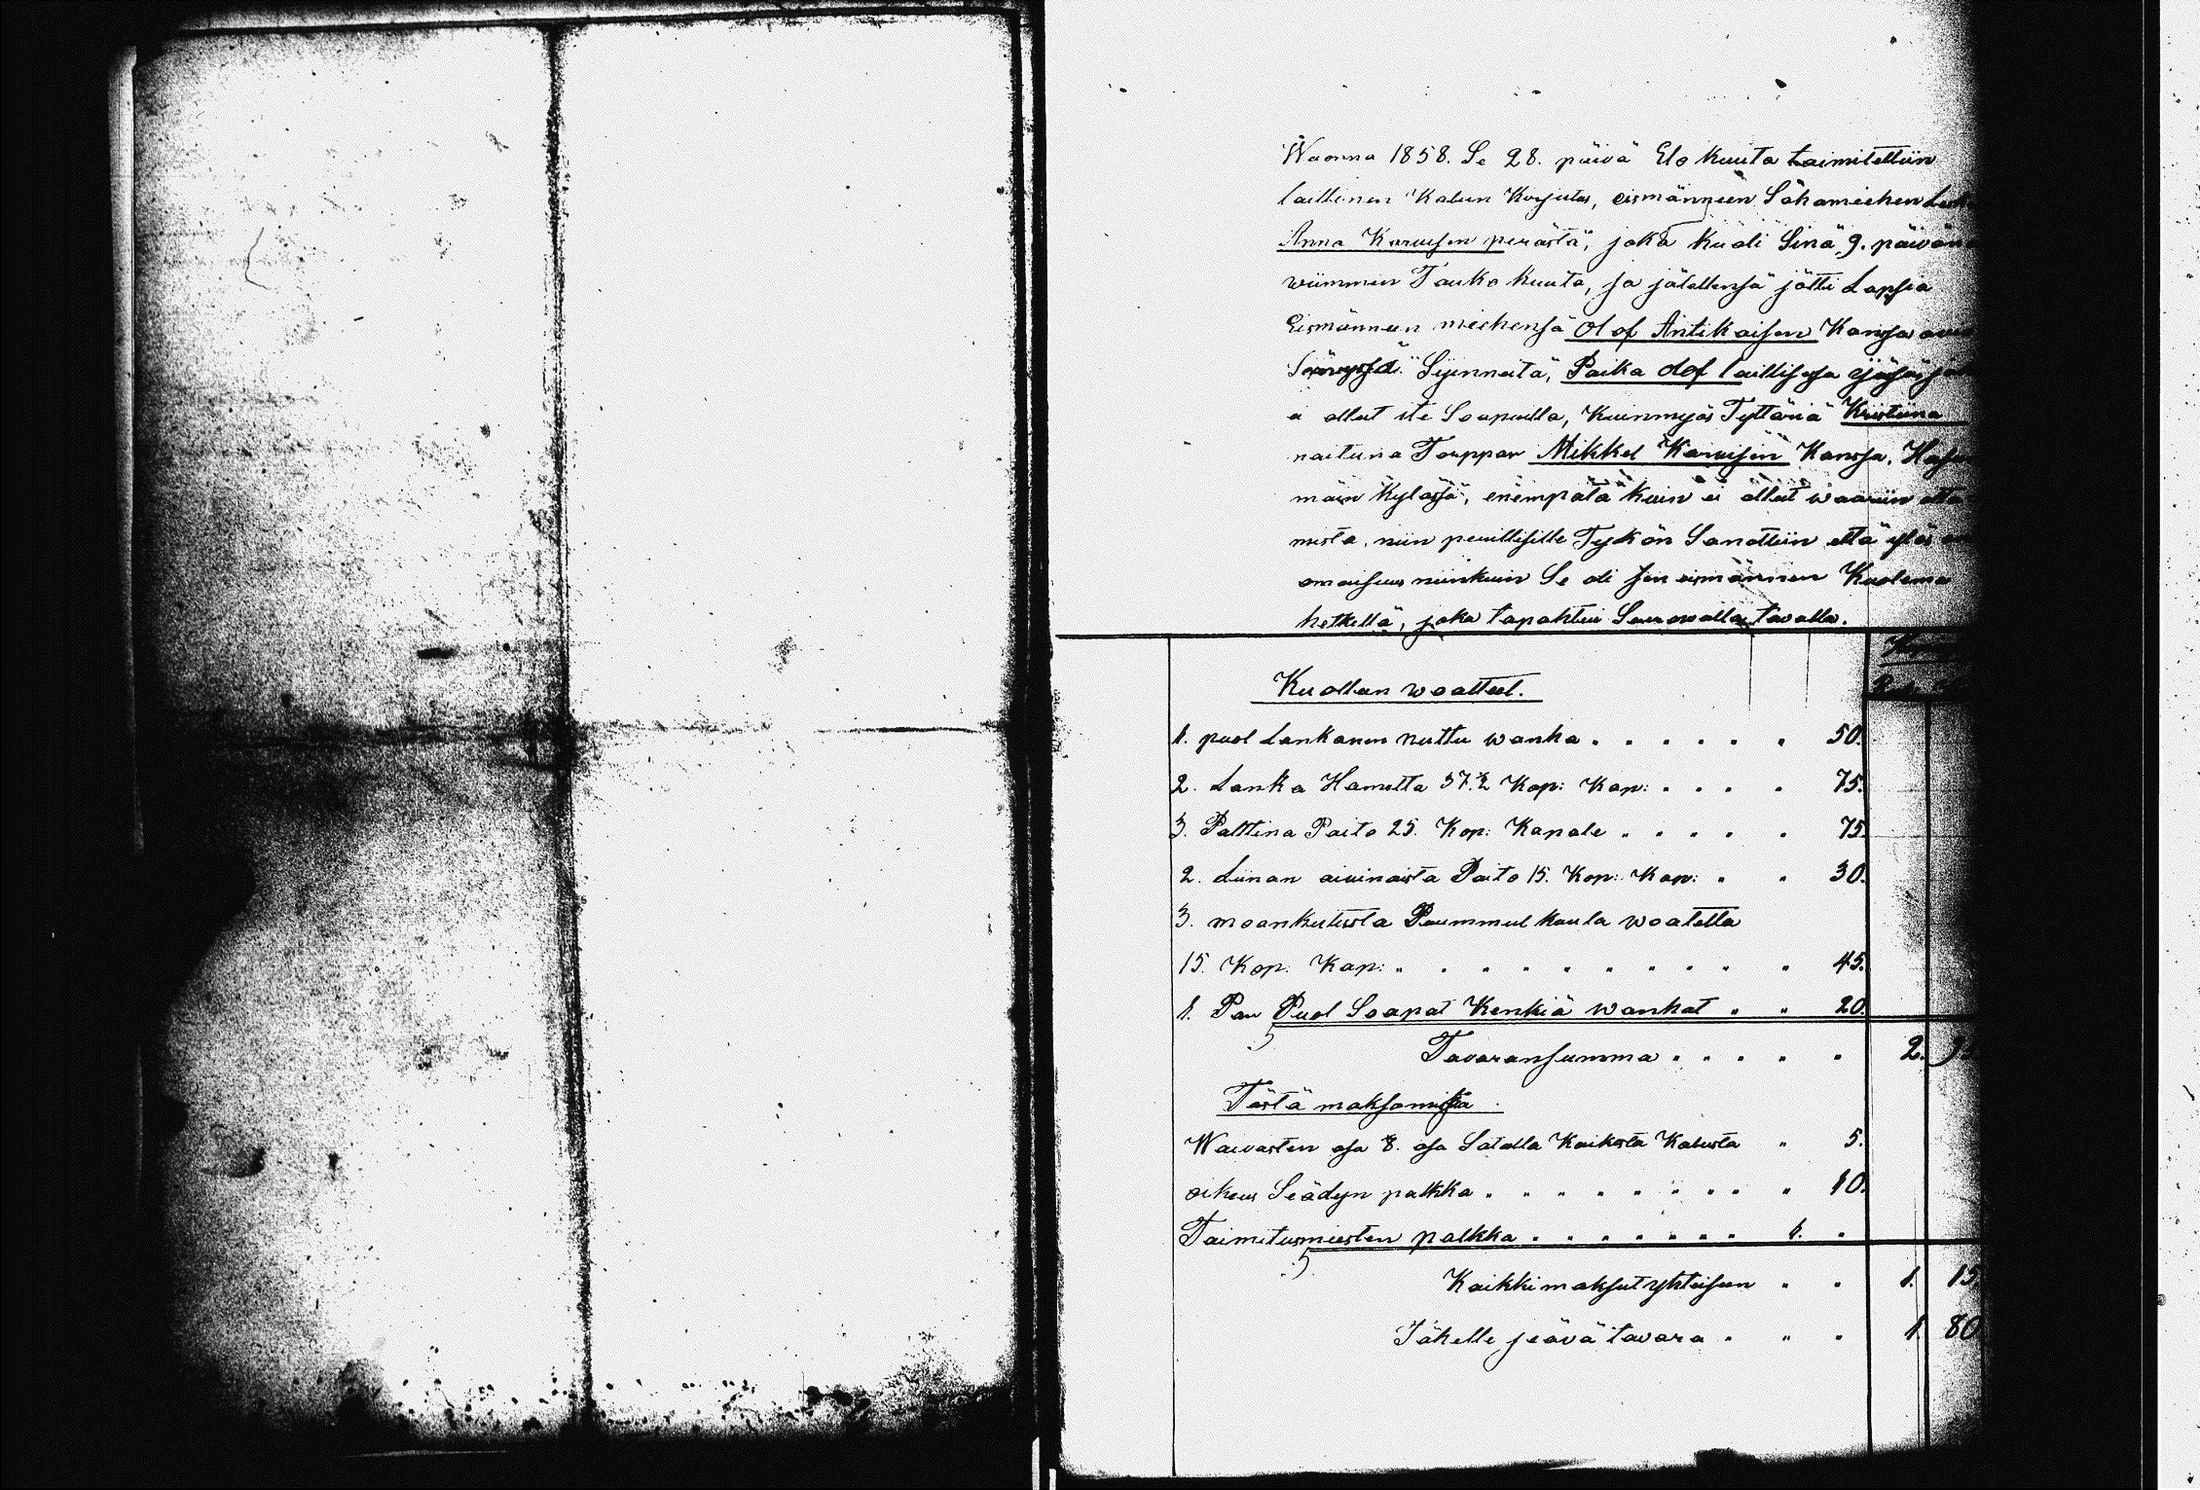 Wuonna 1858. Se 28. päivä Elo kuuta toimitettiin
laillinen Kalun Korjutus, eismänneen Söhamiehen Lesk
Anna Karvisen perästä, joka kuoli Sinä 9. päivänä
wiimmen Touko kuuta, ja jälellensä jätti Lapsia
Eismänneen miehensä Olof Antikaisen Kansa
Syenneitä, Paika Olof laillisesa ijäsä,
ei ollut ite Soapuilla, Kuinmyös Tyttäriä Kristiina
naituna Torppar Mikkel Karvisen Kansa,
mäen Kylässä, enempätä kuin ei ollut waariin otta
mista, niin perillisille Tykön Sanottiin että ylös
omaisuus niinkuin Se oli sen eismännen Kuolema
hetkellä, joka tapahtui Seurawalla tavalla.
Kuollun woatteet.
1. puol Lankanen nuttu wanha . . . . . . 50.
2. Lanka Hametta 37.½ Kop: Kap: . . . . 75.
3. Palttina Paito 25. Kop: Kapale . . . . . 75.
2. Liinan aivinaista Paito 15. Kop: Kap: . . 30.
3. moankutusta Puummul kaula woatetta
15. Kop: Kap: . . . . . . . . . . . 45.
1. Par Puol Soapat Kenkiä wanhat . . 20.
Tavaransumma . . . . . 2.
Tästä maksamista.
Waivasten osa 8. osa Satalla Kaikesta Kalusta . 5.
oikeus Seädyn palkka . . . . . . . . . 10.
Toimitusmiesten palkka . . . . . . . 1. .
Kaikki maksut yhteisen . . 1. 15
Jäkelle jeävä tavara . . . 1. 80